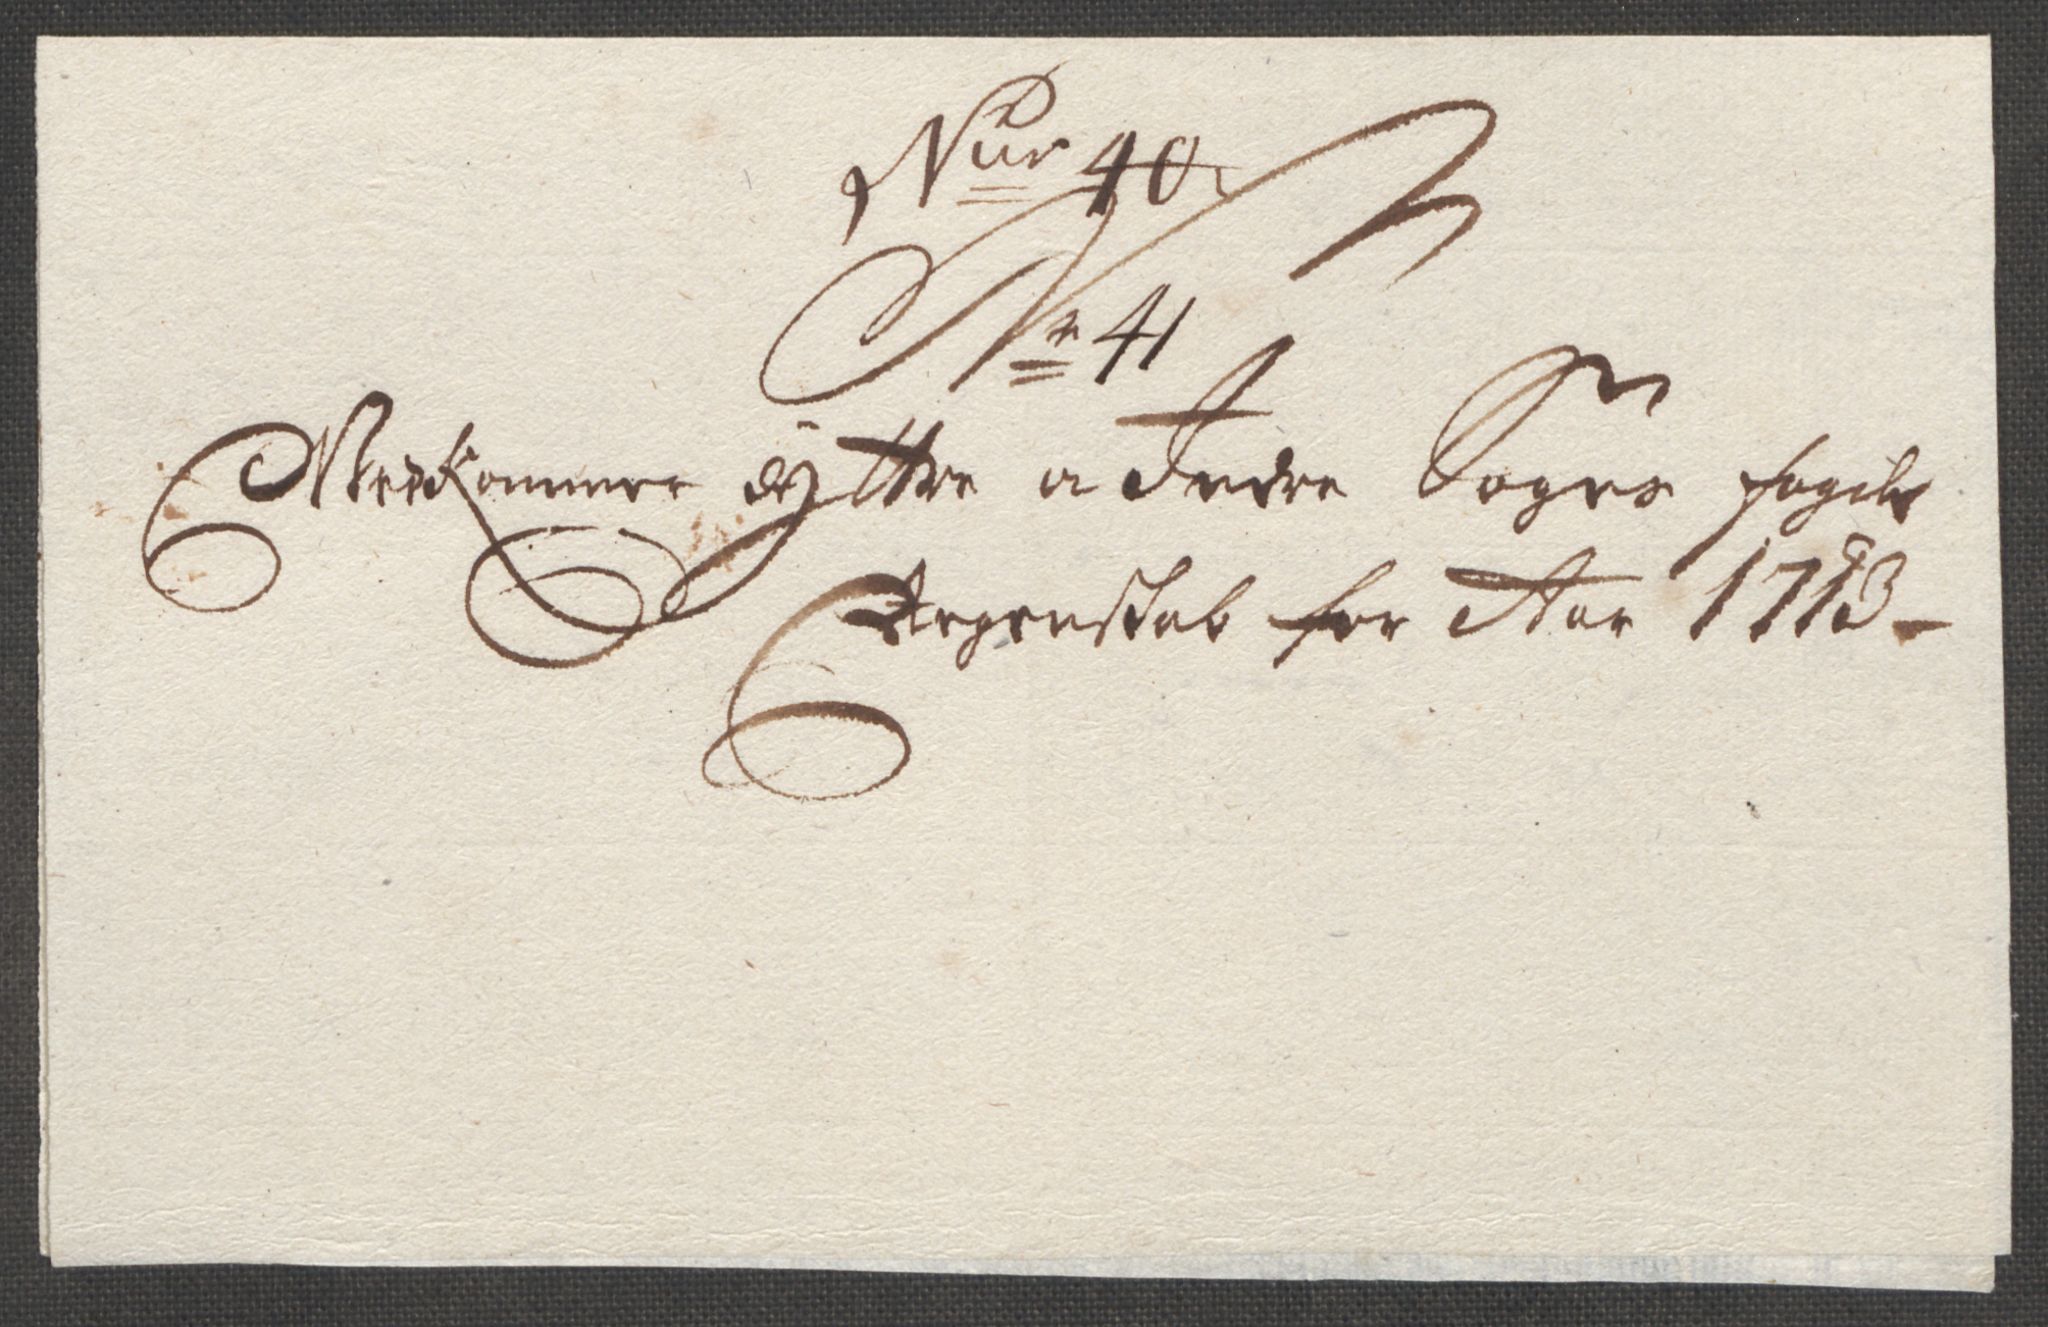 Nur 40
Nr 41
VedKommer Ÿttre a Indre Sogns fogds
Regenskab for Aar 1713